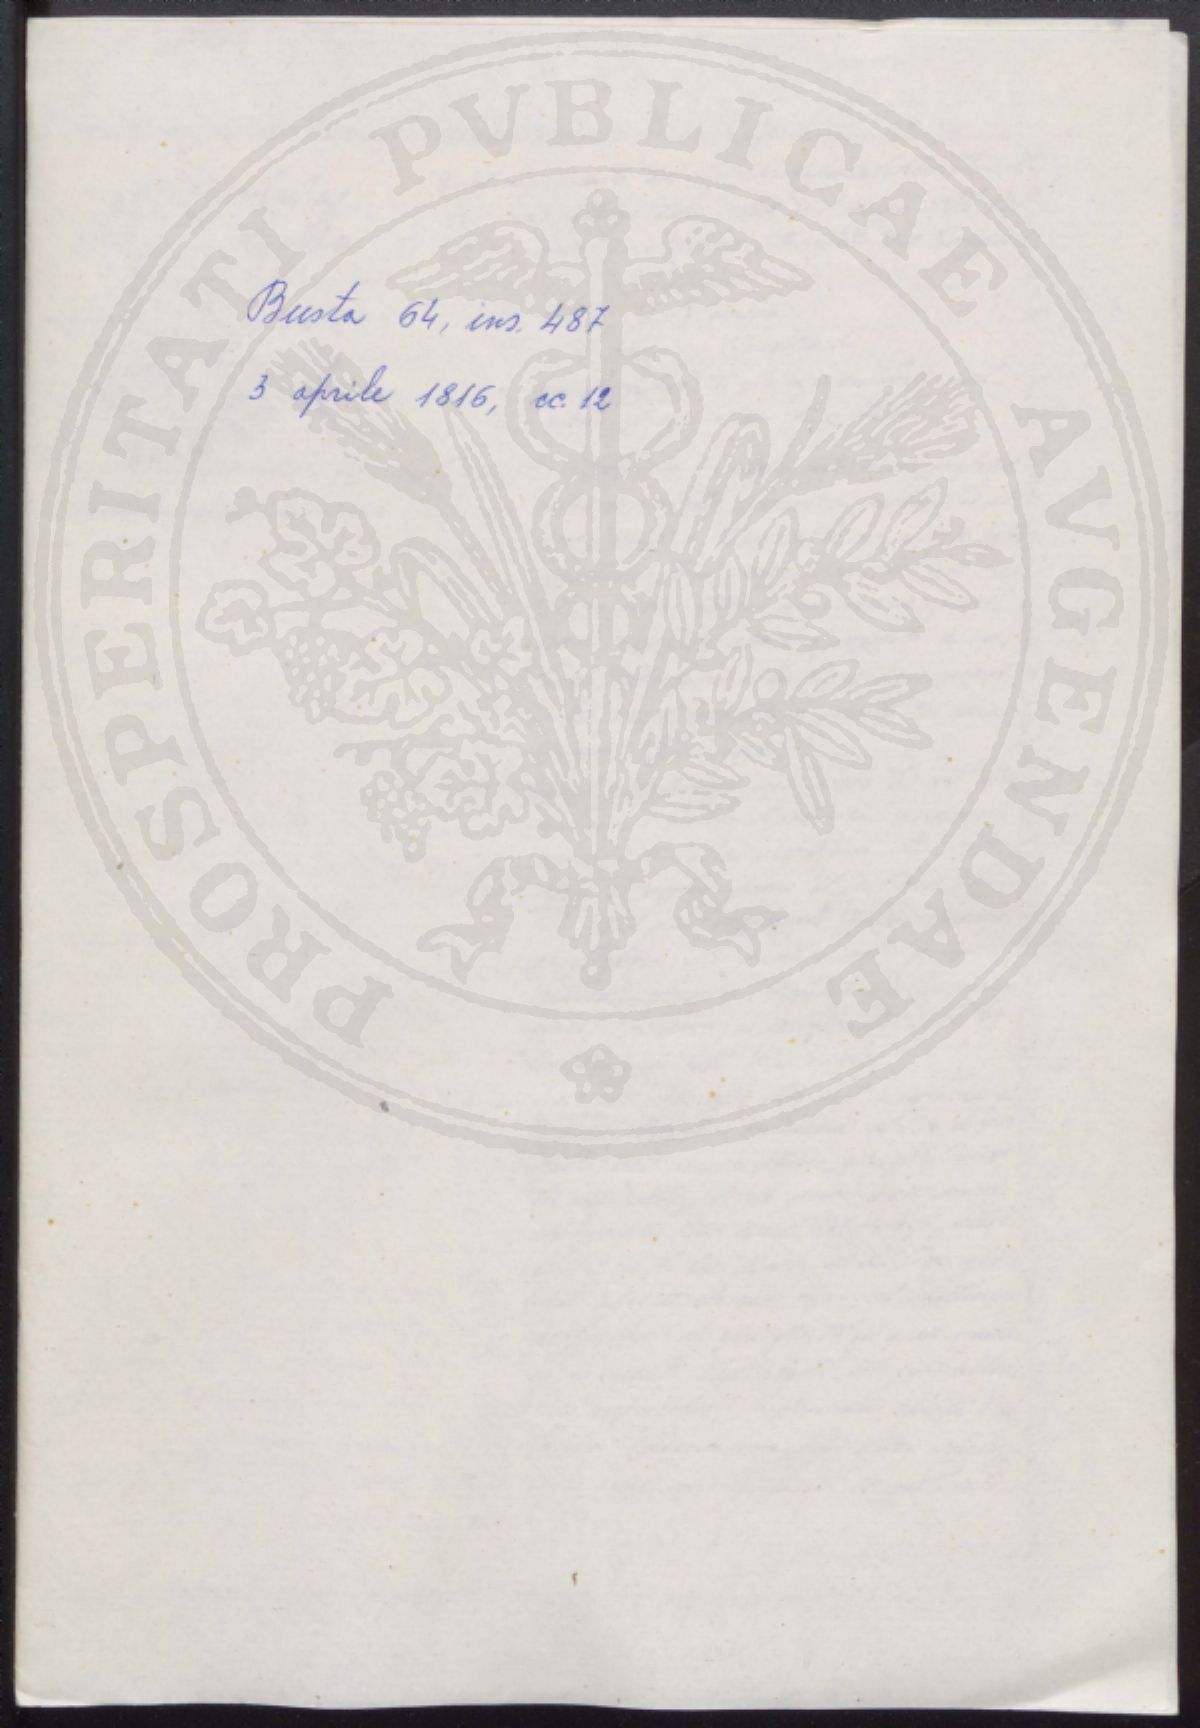 Busta 64, ins. 487
3 aprile 1816, cc. 12
PROSPERITATI PVBLICAE AVGENDAE